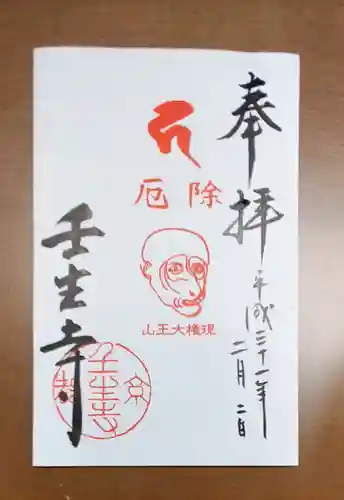 奉拝
平成三十一年
二月二日
厄除
山王大権現
壬生寺
京都
壬生寺